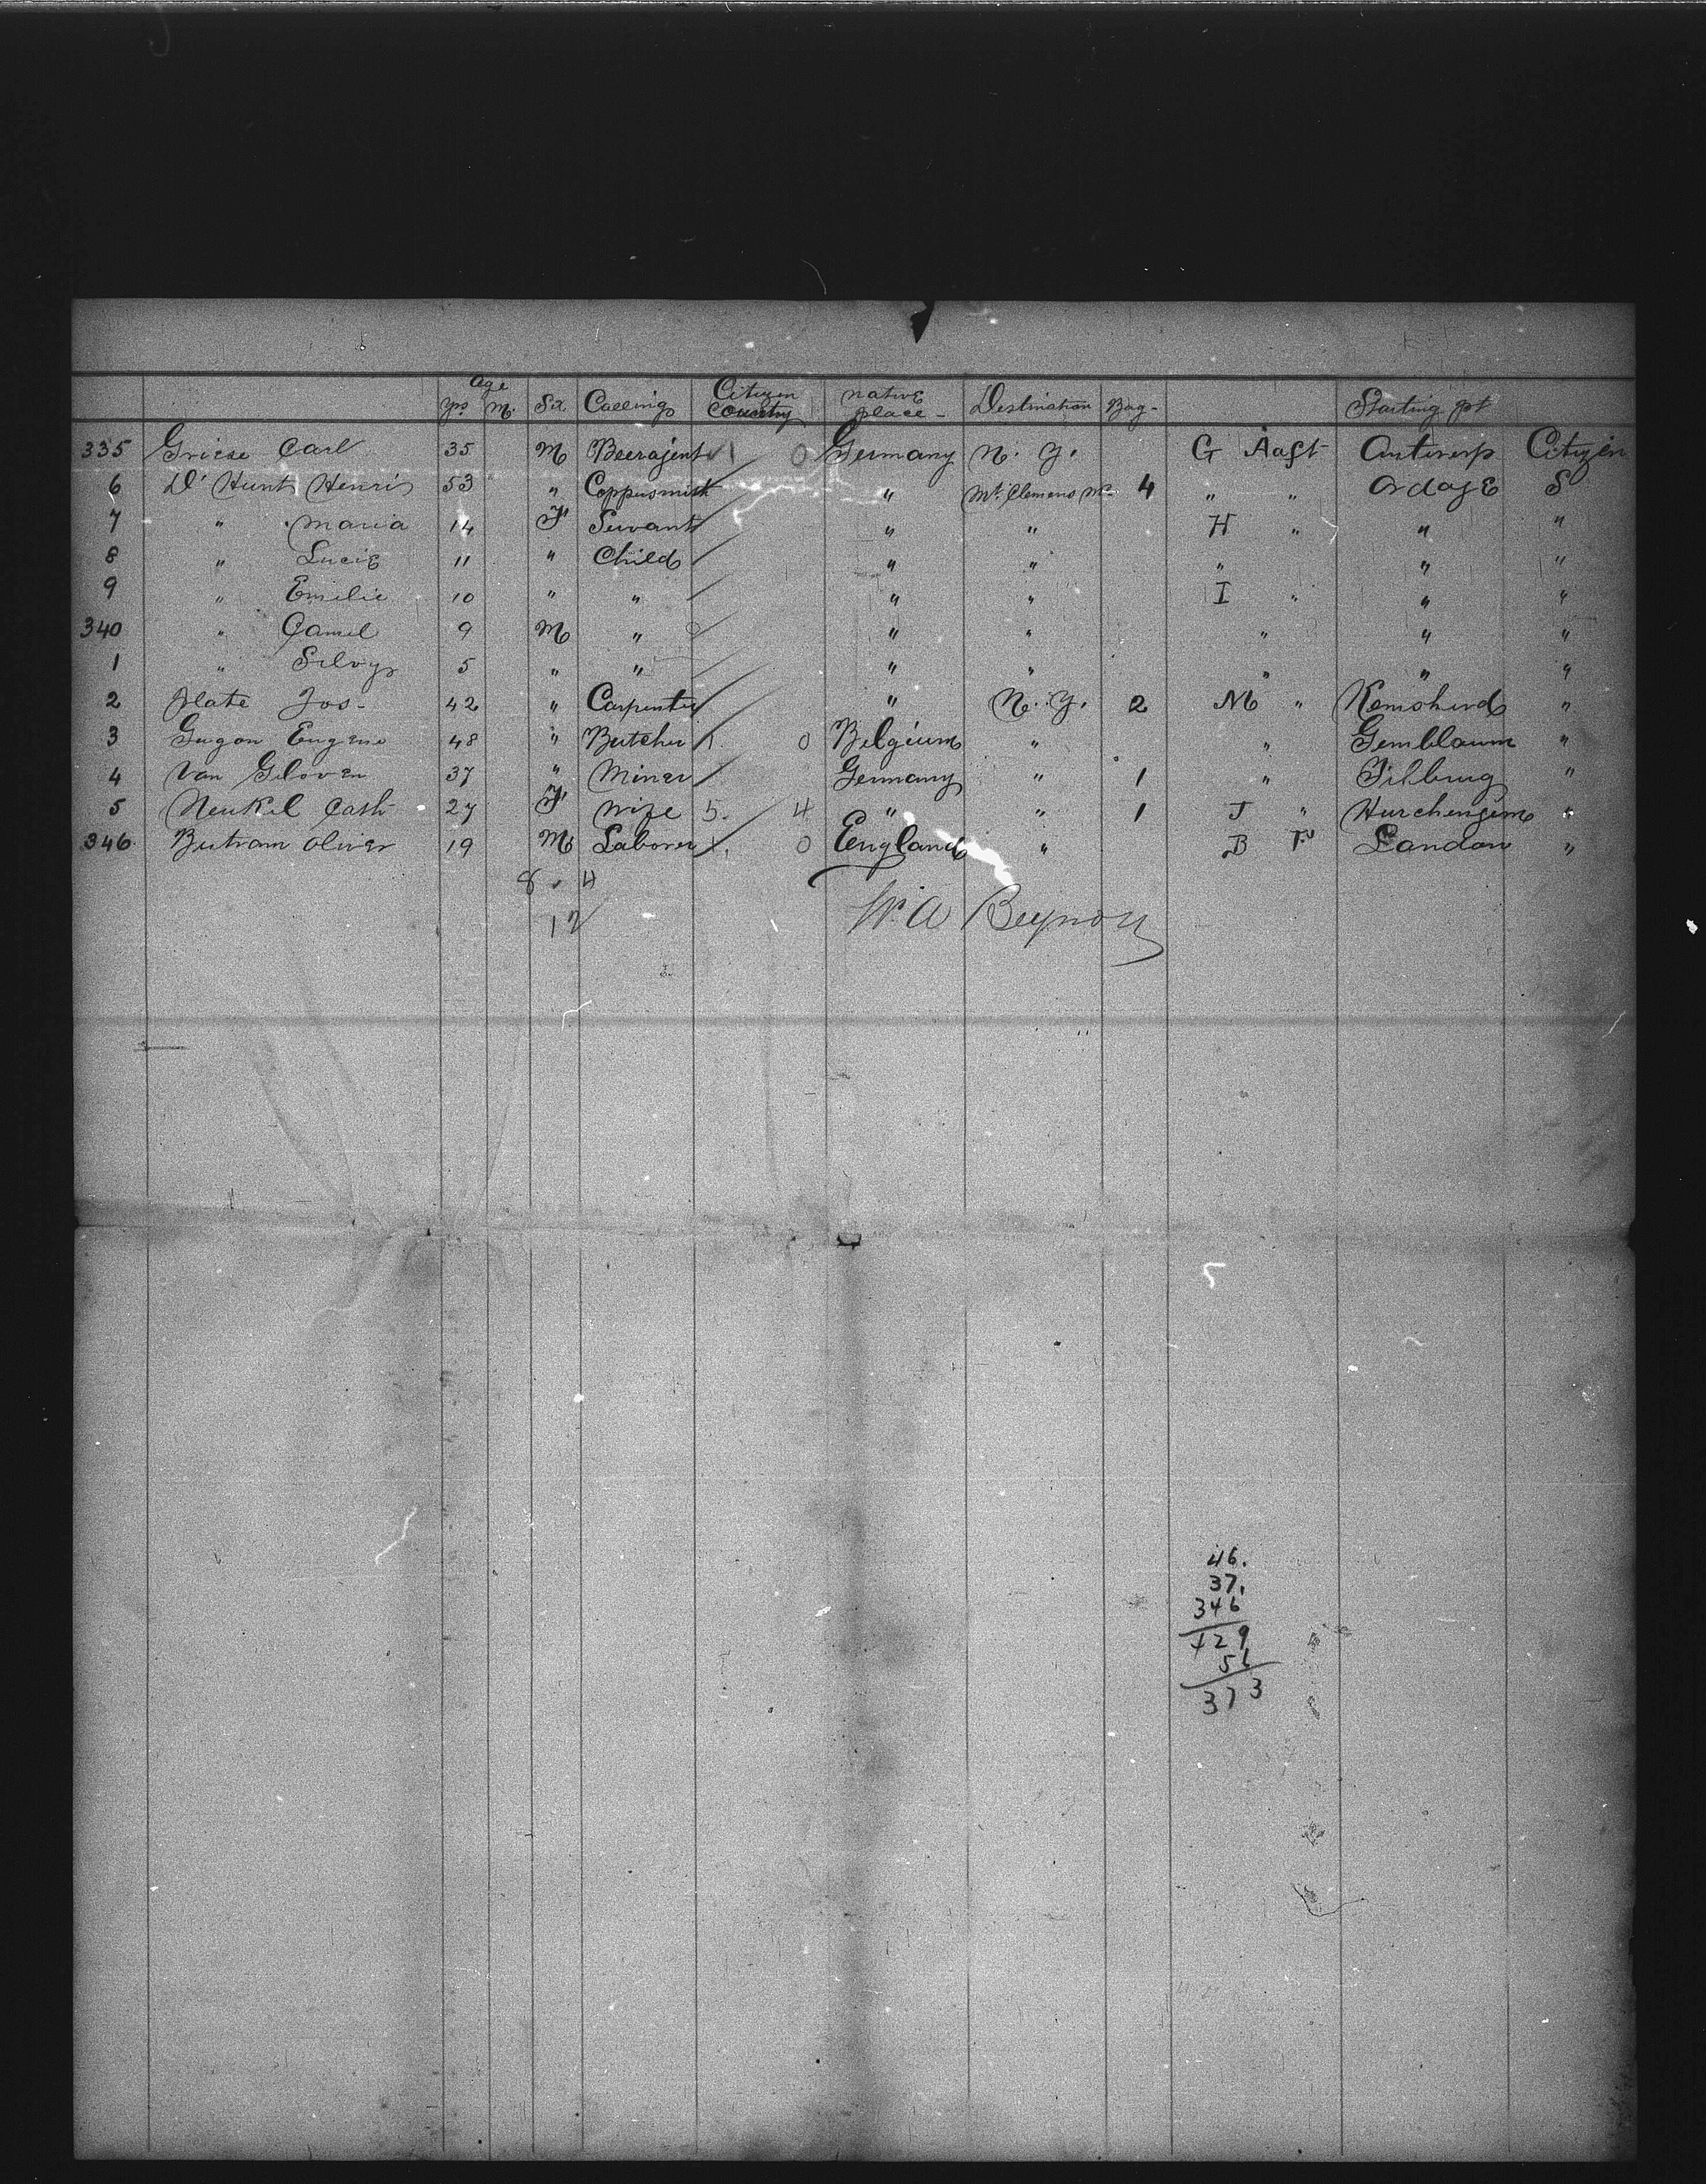 Age
yrs M. Sex Calling Citizen Country native place - Destination Bag - Starting pt
335 Griese Carl 35 M Beerajent 1 0 Germany N. Y. G Aaft Antwerp Citizen
6 D' Hunt Henri 53 " Coppersmith " Mt. Clemens 4 " " Ordage S
7 " Maria 14 F Servant " " H " " "
8 " Lucie 11 " Child " " " " "
9 " Emilie 10 " " " " I " " "
340 " Camel 9 M " " " " " "
1 " Silvys 5 " " " " " " "
2 Plate Jos - 42 " Carpenter " N. Y. 2 M " "
3 Gugon Eugene 48 " Butcher 1. 0 Belgium " " Gemblaum "
4 Van Giloven 37 " Miner Germany " 1 " Tilburg "
5 Neukel Cath 27 F Wife 5. 4 " " 1 J " "
346. Butram Oliver 19 M Laborer 1. 0 England " B F London "
8 . 4
12
W. A Beynon
46.
37.
346
429
56
373